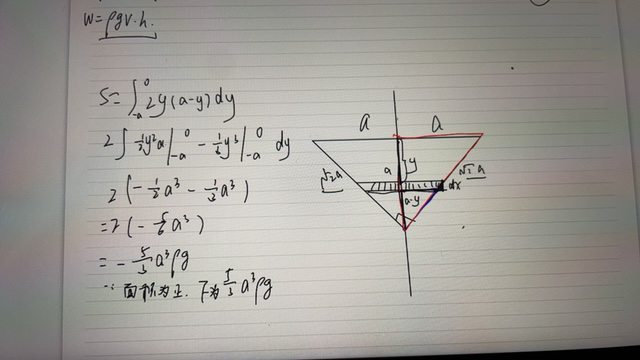 W=ρgV·h.
S=∫_{-a}^{0} 2y(a-y)dy
2∫ ½y²a|_{-a}^{0} - ⅓y³|_{-a}^{0} dy
2(-½a³ - ⅓a³)
=2(-⅚a³)
=-5/3 a³ρg
∵面积为正.
5/3 a³ρg
a a
√2a a y √2a
dx
a-y